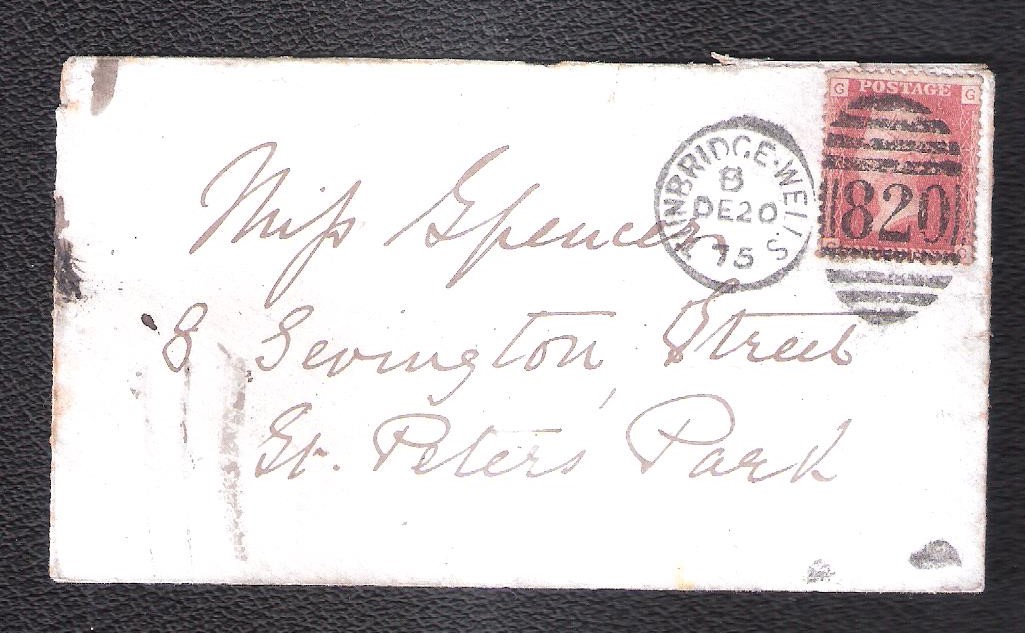 G POSTAGE G
TUNBRIDGE·WELLS
B
DE20
75
820
Miss Spencer
8 Sevington Street
St. Peters' Park